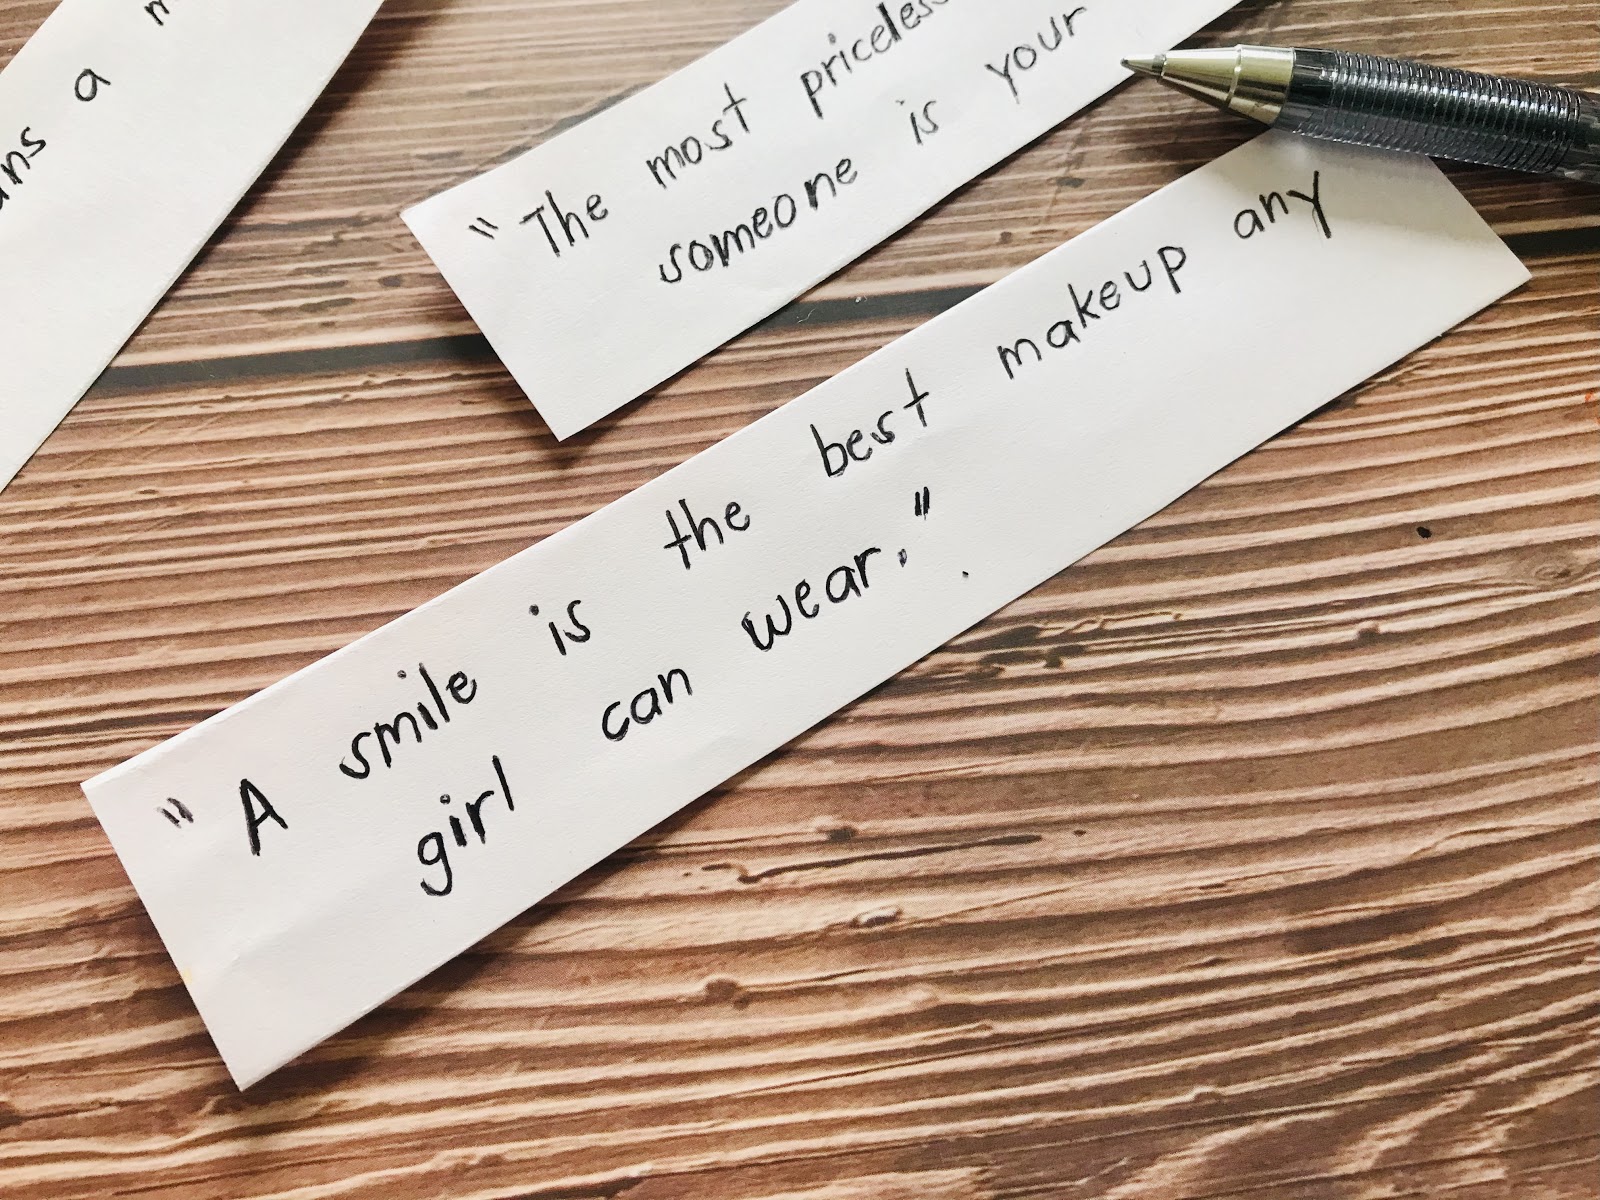 a
"The most priceless
someone is your
"A smile is the best makeup any
girl can wear."